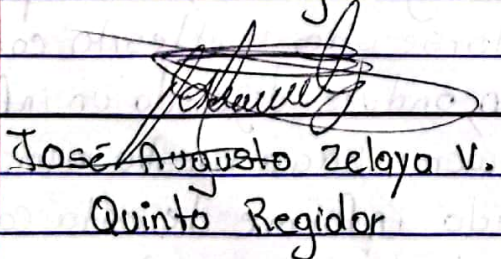 José Augusto Zelaya V.
Quinto Regidor